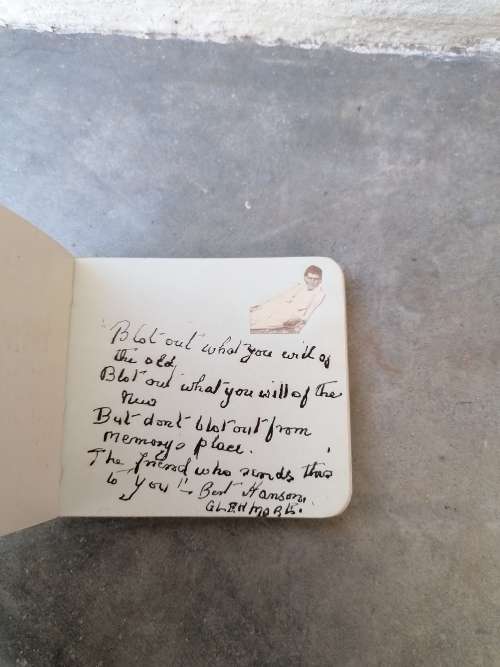 "Blot out what you will of
the old
Blot out what you will of the
New
But don't blot out from
memory's place.
The friend who sends this
to you!! - Bert Hanson.
GLENMORE.